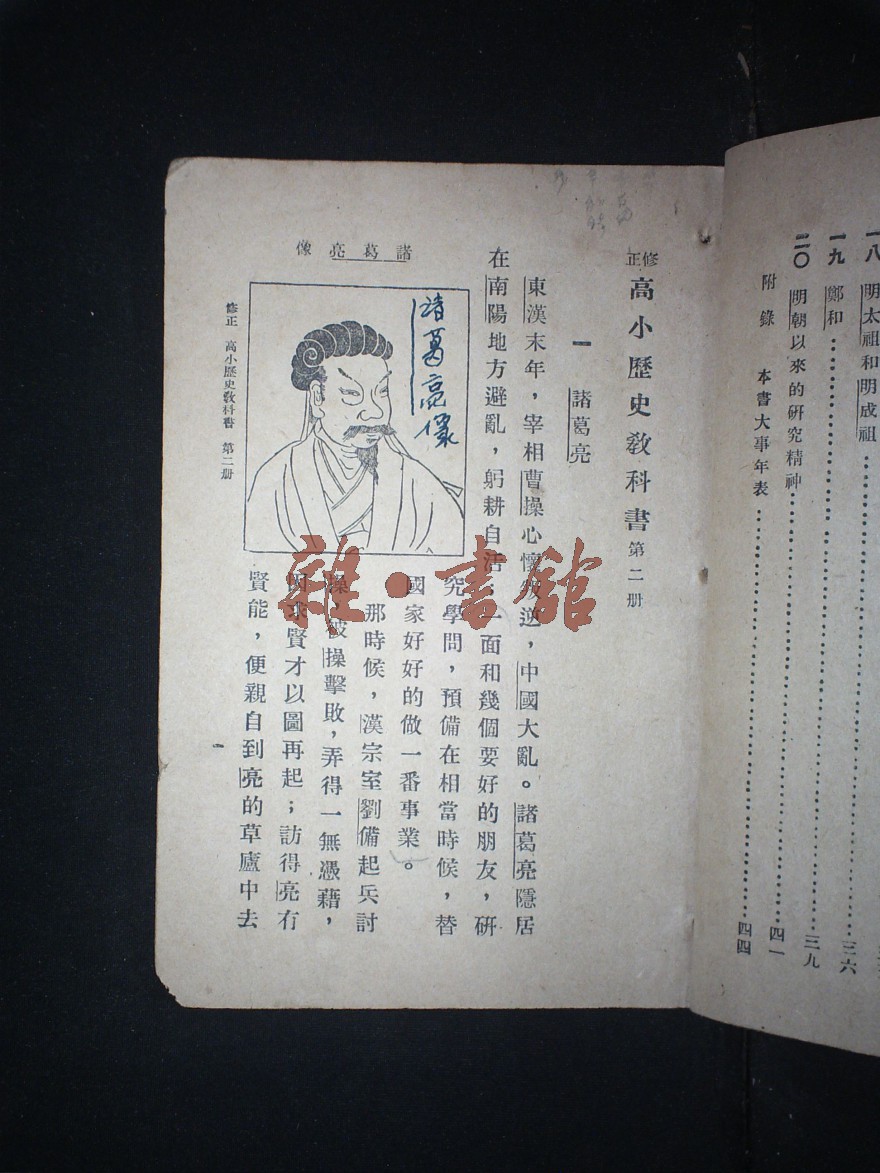 一八 明太祖和明成祖
一九 鄭和 三六
二〇 明朝以來的研究精神 三九
附錄 本書大事年表 四一
四四
修正 高小歷史教科書 第二册
一 諸葛亮
東漢末年，宰相曹操心懷叛逆，中國大亂。諸葛亮隱居
在南陽地方避亂，躬耕自活；一面和幾個要好的朋友，研
究學問，預備在相當時候，替
國家好好的做一番事業。
那時候，漢宗室劉備起兵討
操，被操擊敗，弄得一無憑藉，
因求賢才以圖再起；訪得亮有
賢能，便親自到亮的草廬中去
諸葛亮像
諸葛亮像
修正 高小歷史教科書 第二册
一
雜·書館